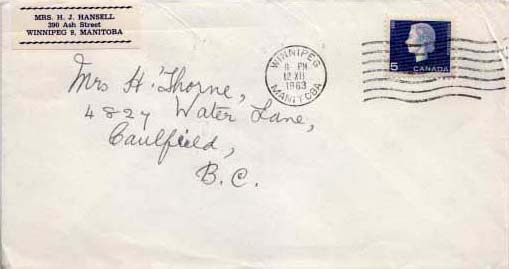 MRS. H. J. HANSELL
390 Ash Street
WINNIPEG 9, MANITOBA
WINNIPEG
PM
12 XII
1963
MANITOBA
5 CANADA
Mrs H. Thorne,
4827 Water Lane,
Caulfield,
B.C.